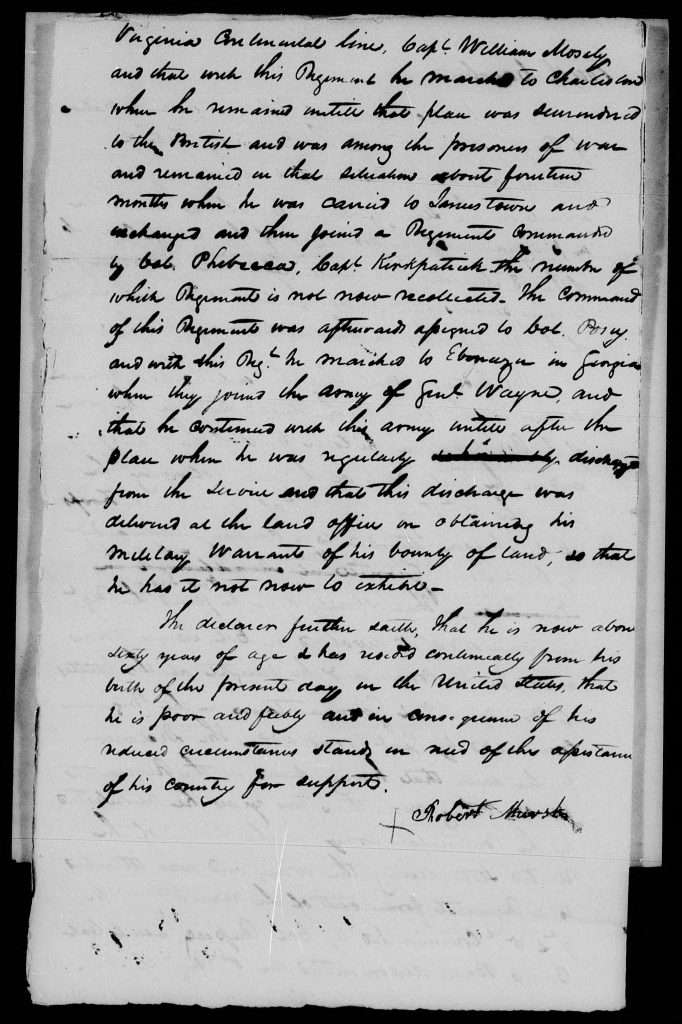 Virginia Continental line, Capt. William Mosely
and that with this Regiment he marched to Charleston
when he remained untill that place was surrendered
to the British and was among the prisoners of war
and remained in that situation about fourteen
months when he was carried to Jamestown and
exchanged and then joined a Regiment commanded
by Col. Phebecca, Capt. Kirkpatrick the number of
which Regiment is not now recollected - The command
of this Regiment was afterwards assigned to Col. Posey
and with this Regt. he marched to Ebenezer in Georgia
when they joined the army of Genl. Wayne, and
that he continued with this army untill after the
place when he was regularly discharged
from the service and that this discharge was
delivered at the land office on obtaining his
military Warrant of his bounty of land, so that
he has it not now to exhibit -
The declarer further saith, that he is now above
sixty years of age & has resided continually from his
birth of the present day in the United States, that
he is poor and feeble and in consequence of his
reduced circumstances stands in need of the assistance
of his country for support.
Robert